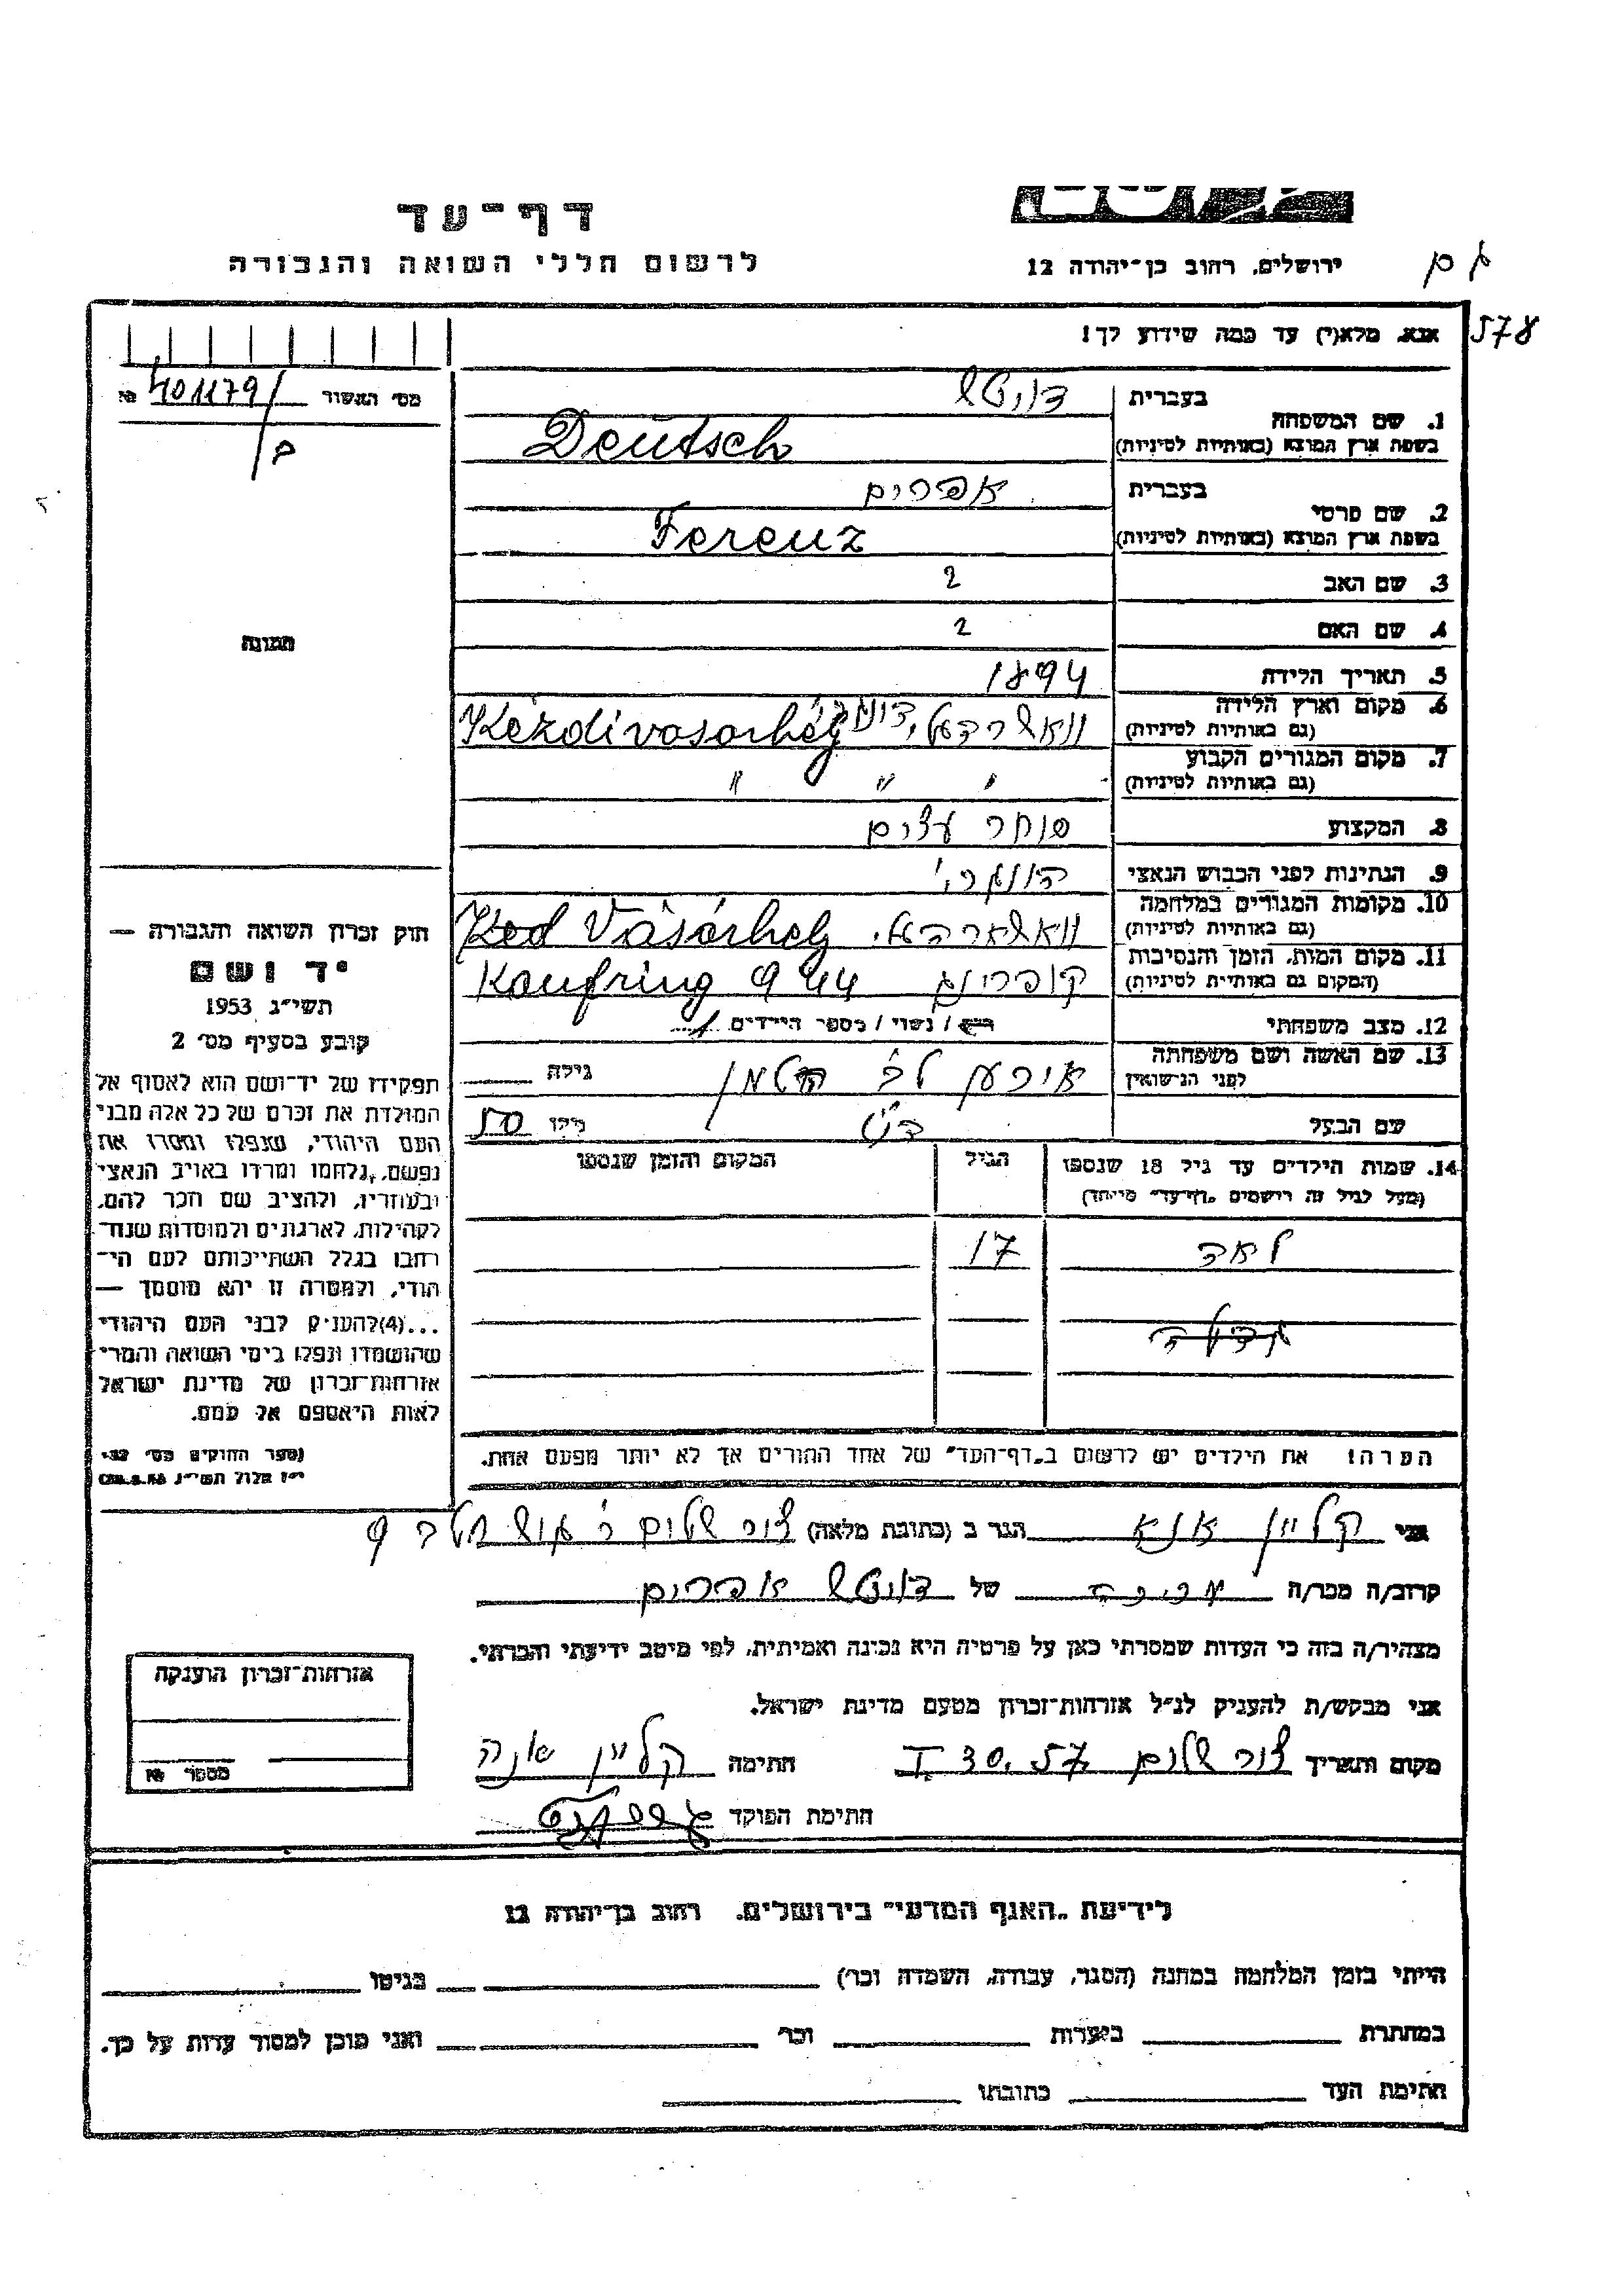 דף-עד
לרשום חללי השואה והגבורה
ירושלים, רחוב בן-יהודה 12
578
אנא, מלא(י) עד כמה שידוע לך!
מס' האשור 401179/ №
1. שם המשפחה
בעברית דויטש
בשפת ארץ המוצא (באותיות לטיניות) Deutsch
2. שם פרטי
בעברית אפרים
בשפת ארץ המוצא (באותיות לטיניות) Ferenz
3. שם האב ?
4. שם האם ?
5. תאריך הלידה 1894
6. מקום וארץ הלידה
(גם באותיות לטיניות) Kézdivasarhely
7. מקום המגורים הקבוע
(גם באותיות לטיניות) " " "
8. המקצוע סוחר עצים
9. הנתינות לפני הכבוש הנאצי הונגרי
10. מקומות המגורים במלחמה
(גם באותיות לטיניות) Ked Vásárhely
11. מקום המות, הזמן והנסיבות
(המקום גם באותיות לטיניות) קופרינג Kaufring 944
12. מצב משפחתי רווק / נשוי / מספר הילדים 1
13. שם האשה ושם משפחתה
לפני הנישואין גילה
שם הבעל גילו 50
14. שמות הילדים עד גיל 18 שנספו
(מעל לגיל זה רושמים „דף-עד" מיוחד)
הגיל
המקום והזמן שנספו
לאה 17
הערה! את הילדים יש לרשום ב„דף-העד" של אחד ההורים אך לא יותר מפעם אחת.
תמונה
חוק זכרון השואה והגבורה —
יד ושם
תשי"ג 1953
קובע בסעיף מס' 2
תפקידו של יד-ושם הוא לאסוף אל
המולדת את זכרם של כל אלה מבני
העם היהודי, שנפלו ומסרו את
נפשם, נלחמו ומרדו באויב הנאצי
ובעוזריו, ולהציב שם וזכר להם,
לקהילות, לארגונים ולמוסדות שנח-
רבו בגלל השתייכותם לעם הי-
הודי, ולמטרה זו יהא מוסמך —
...(4) להעניק לבני העם היהודי
שהושמדו ונפלו בימי השואה והמרי
אזרחות-זכרון של מדינת ישראל
לאות היאספם אל עמם.
אני קליין אנא הגר ב (כתובת מלאה) צור שלום
קרוב/ה מכר/ה מכרה של דויטש אפרים
מצהיר/ה בזה כי העדות שמסרתי כאן על פרטיה היא נכונה ואמיתית, לפי מיטב ידיעתי והכרתי.
אני מבקש/ת להעניק לנ"ל אזרחות-זכרון מטעם מדינת ישראל.
מקום ותאריך צור שלום 30.57.I חתימה קליין אנה
חתימת הפוקד
אזרחות-זכרון הוענקה
מספר №
לידיעת „האגף המדעי" בירושלים, רחוב בן-יהודה 12
הייתי בזמן המלחמה במחנה (הסגר, עבודה, השמדה וכו') בגיטו
במחתרת ביערות וכו' ואני מוכן למסור עדות על כך.
חתימת העד כתובתו